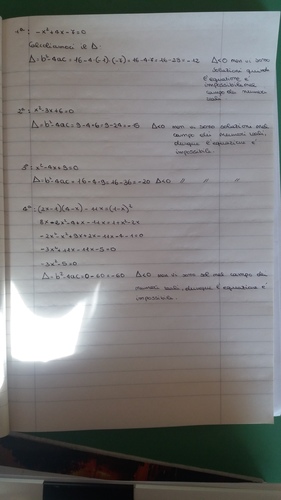 1ª: -x²+4x-7=0
Calcoliamoci il Δ
Δ=b²-4ac=16-4·(-1)·(-7)=16-4·7=16-28=-12 Δ<0 non ci sono
soluzioni quindi
l'equazione è
impossibile nel
campo dei numeri
reali
2ª: x²-3x+6=0
Δ=b²-4ac=9-4·6=9-24=-15 Δ<0 non ci sono soluzioni nel
campo dei numeri reali,
dunque l'equazione è
impossibile.
3ª: x²-4x+9=0
Δ=b²-4ac=16-4·9=16-36=-20 Δ<0 " " "
4ª: (2x-1)(4-x)-11x=(1-x)²
8x-2x²-4+x-11x=1+x²-2x
-2x²-x²+9x+2x-11x-4-1=0
-3x²+11x-11x-5=0
-3x²-5=0
Δ=b²-4ac=0-60=-60 Δ<0 non ci sol nel campo dei
numeri reali, dunque l'equazione è
impossibile.